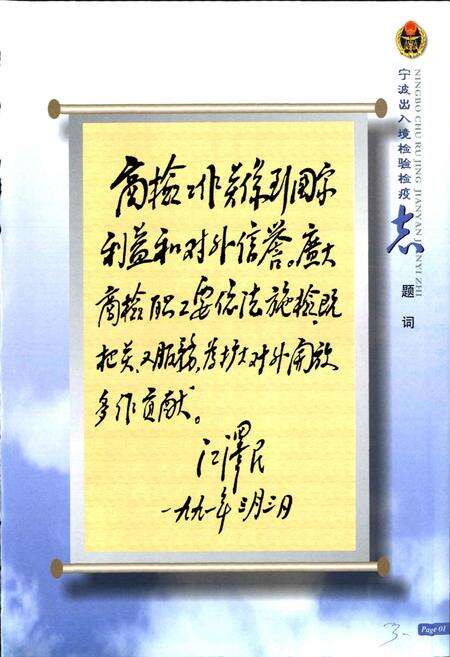 商检工作关系到国家
利益和对外信誉。广大
商检职工要依法施检，既
把关、又服务，为扩大对外开放
多作贡献。
江泽民
一九九一年三月三日
宁波出入境检验检疫志
NINGBO CHU RUJING JIANYAN JIANYI ZHI
题词
Page 01